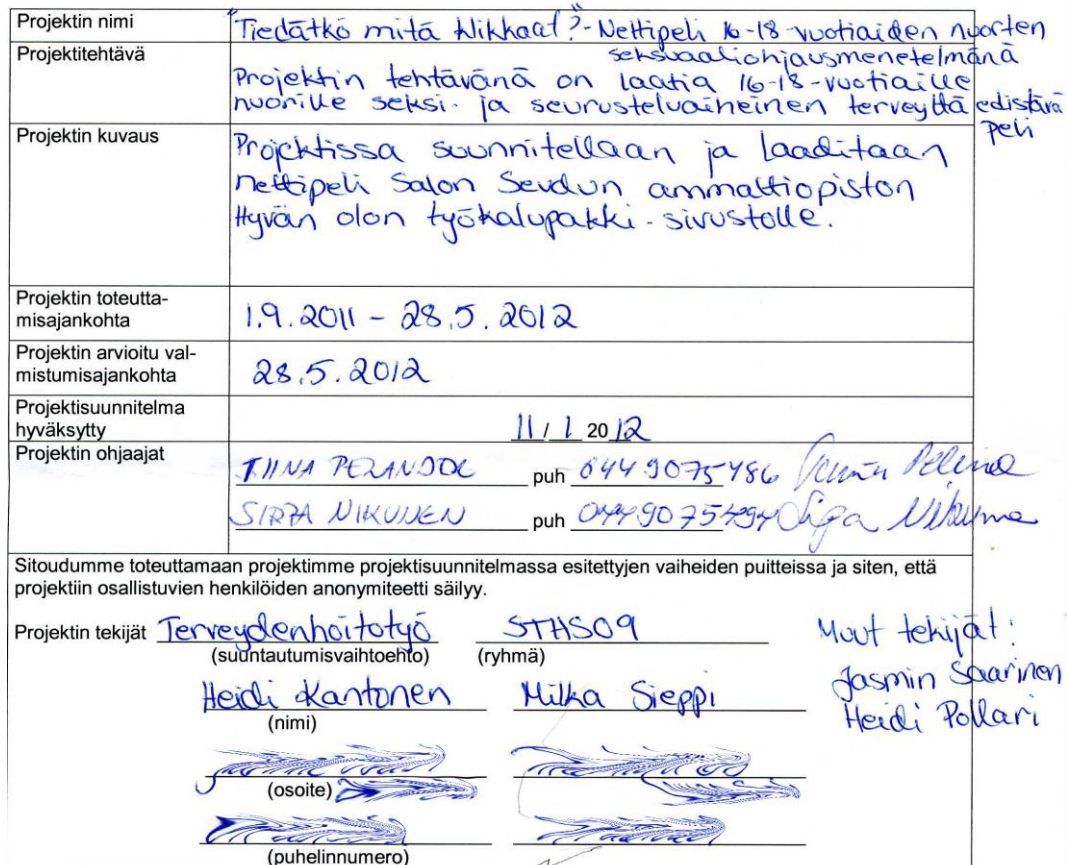 Projektin nimi
"Tiedätkö mitä klikkaat?"- Nettipeli 16-18-vuotiaiden nuorten
seksuaaliohjausmenetelmänä
Projektitehtävä
Projektin tehtävänä on laatia 16-18-vuotiaille
nuorille seksi- ja seurusteluaiheinen terveyttä edistävä
peli
Projektin kuvaus
Projektissa suunnitellaan ja laaditaan
nettipeli Salon Seudun ammattiopiston
Hyvän olon työkalupakki-sivustolle.
Projektin toteutta-
misajankohta
1.9.2011 - 28.5.2012
Projektin arvioitu val-
mistumisajankohta
28.5.2012
Projektisuunnitelma
hyväksytty
11/ 1 20 12
Projektin ohjaajat
TIINA puh 0449075486
SIRPA NIKUNEN puh 0449075494
Sitoudumme toteuttamaan projektimme projektisuunnitelmassa esitettyjen vaiheiden puitteissa ja siten, että
projektiin osallistuvien henkilöiden anonymiteetti säilyy.
Projektin tekijät Terveydenhoitotyö STHS09
(suuntautumisvaihtoehto) (ryhmä)
Heidi Kantonen Milka Sieppi
(nimi)
(osoite)
(puhelinnumero)
Muut tekijät:
Jasmin Saarinen
Heidi Pollari